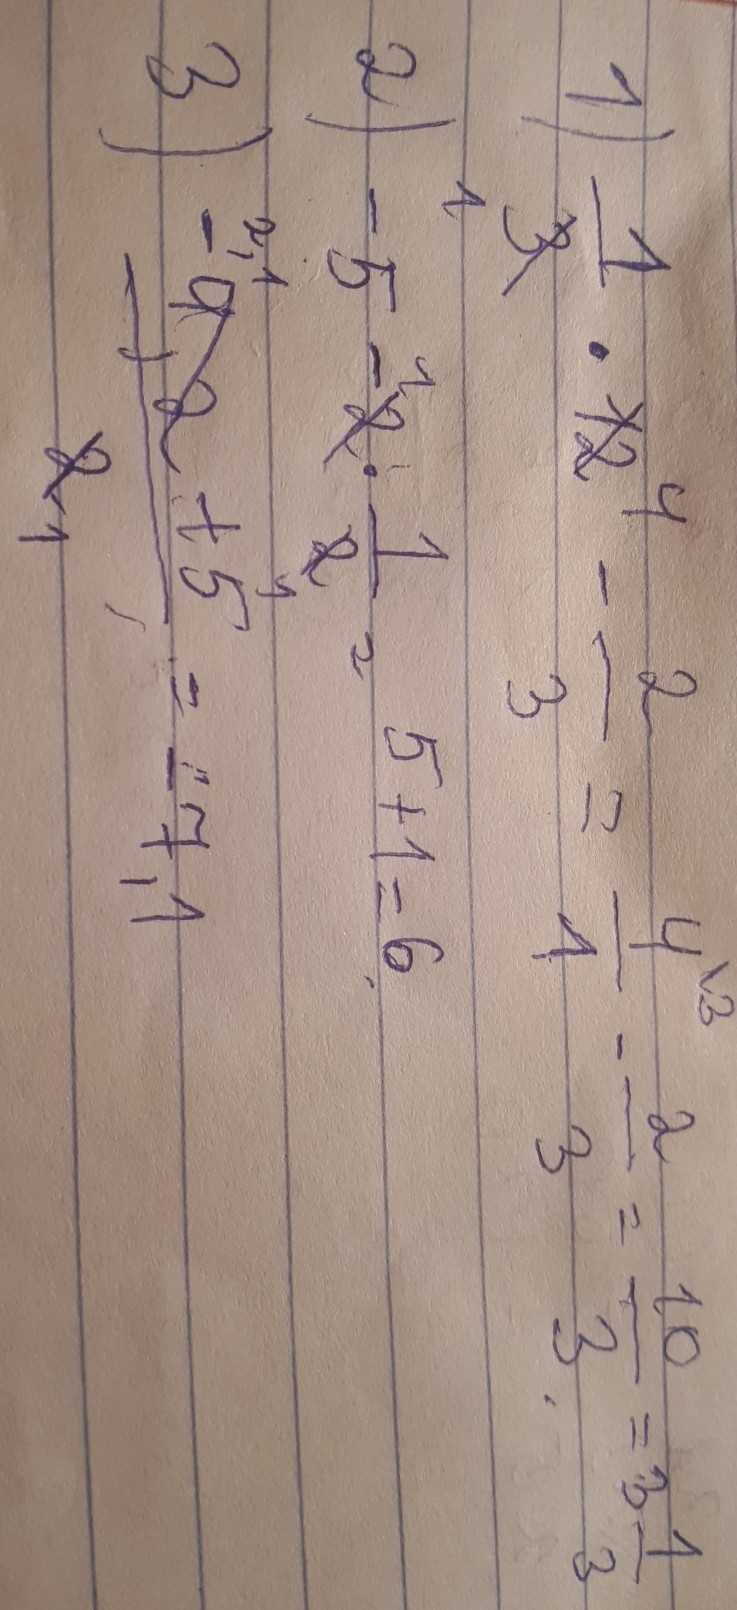 1) 1/3 · 12 4 - 2/3 = 4\3/1 - 2/3 = 10/3 = 3 1/3
2) -5 - 2 · 1/2 = 5+1=6
3) -4,2/2 + 5 = -7,1